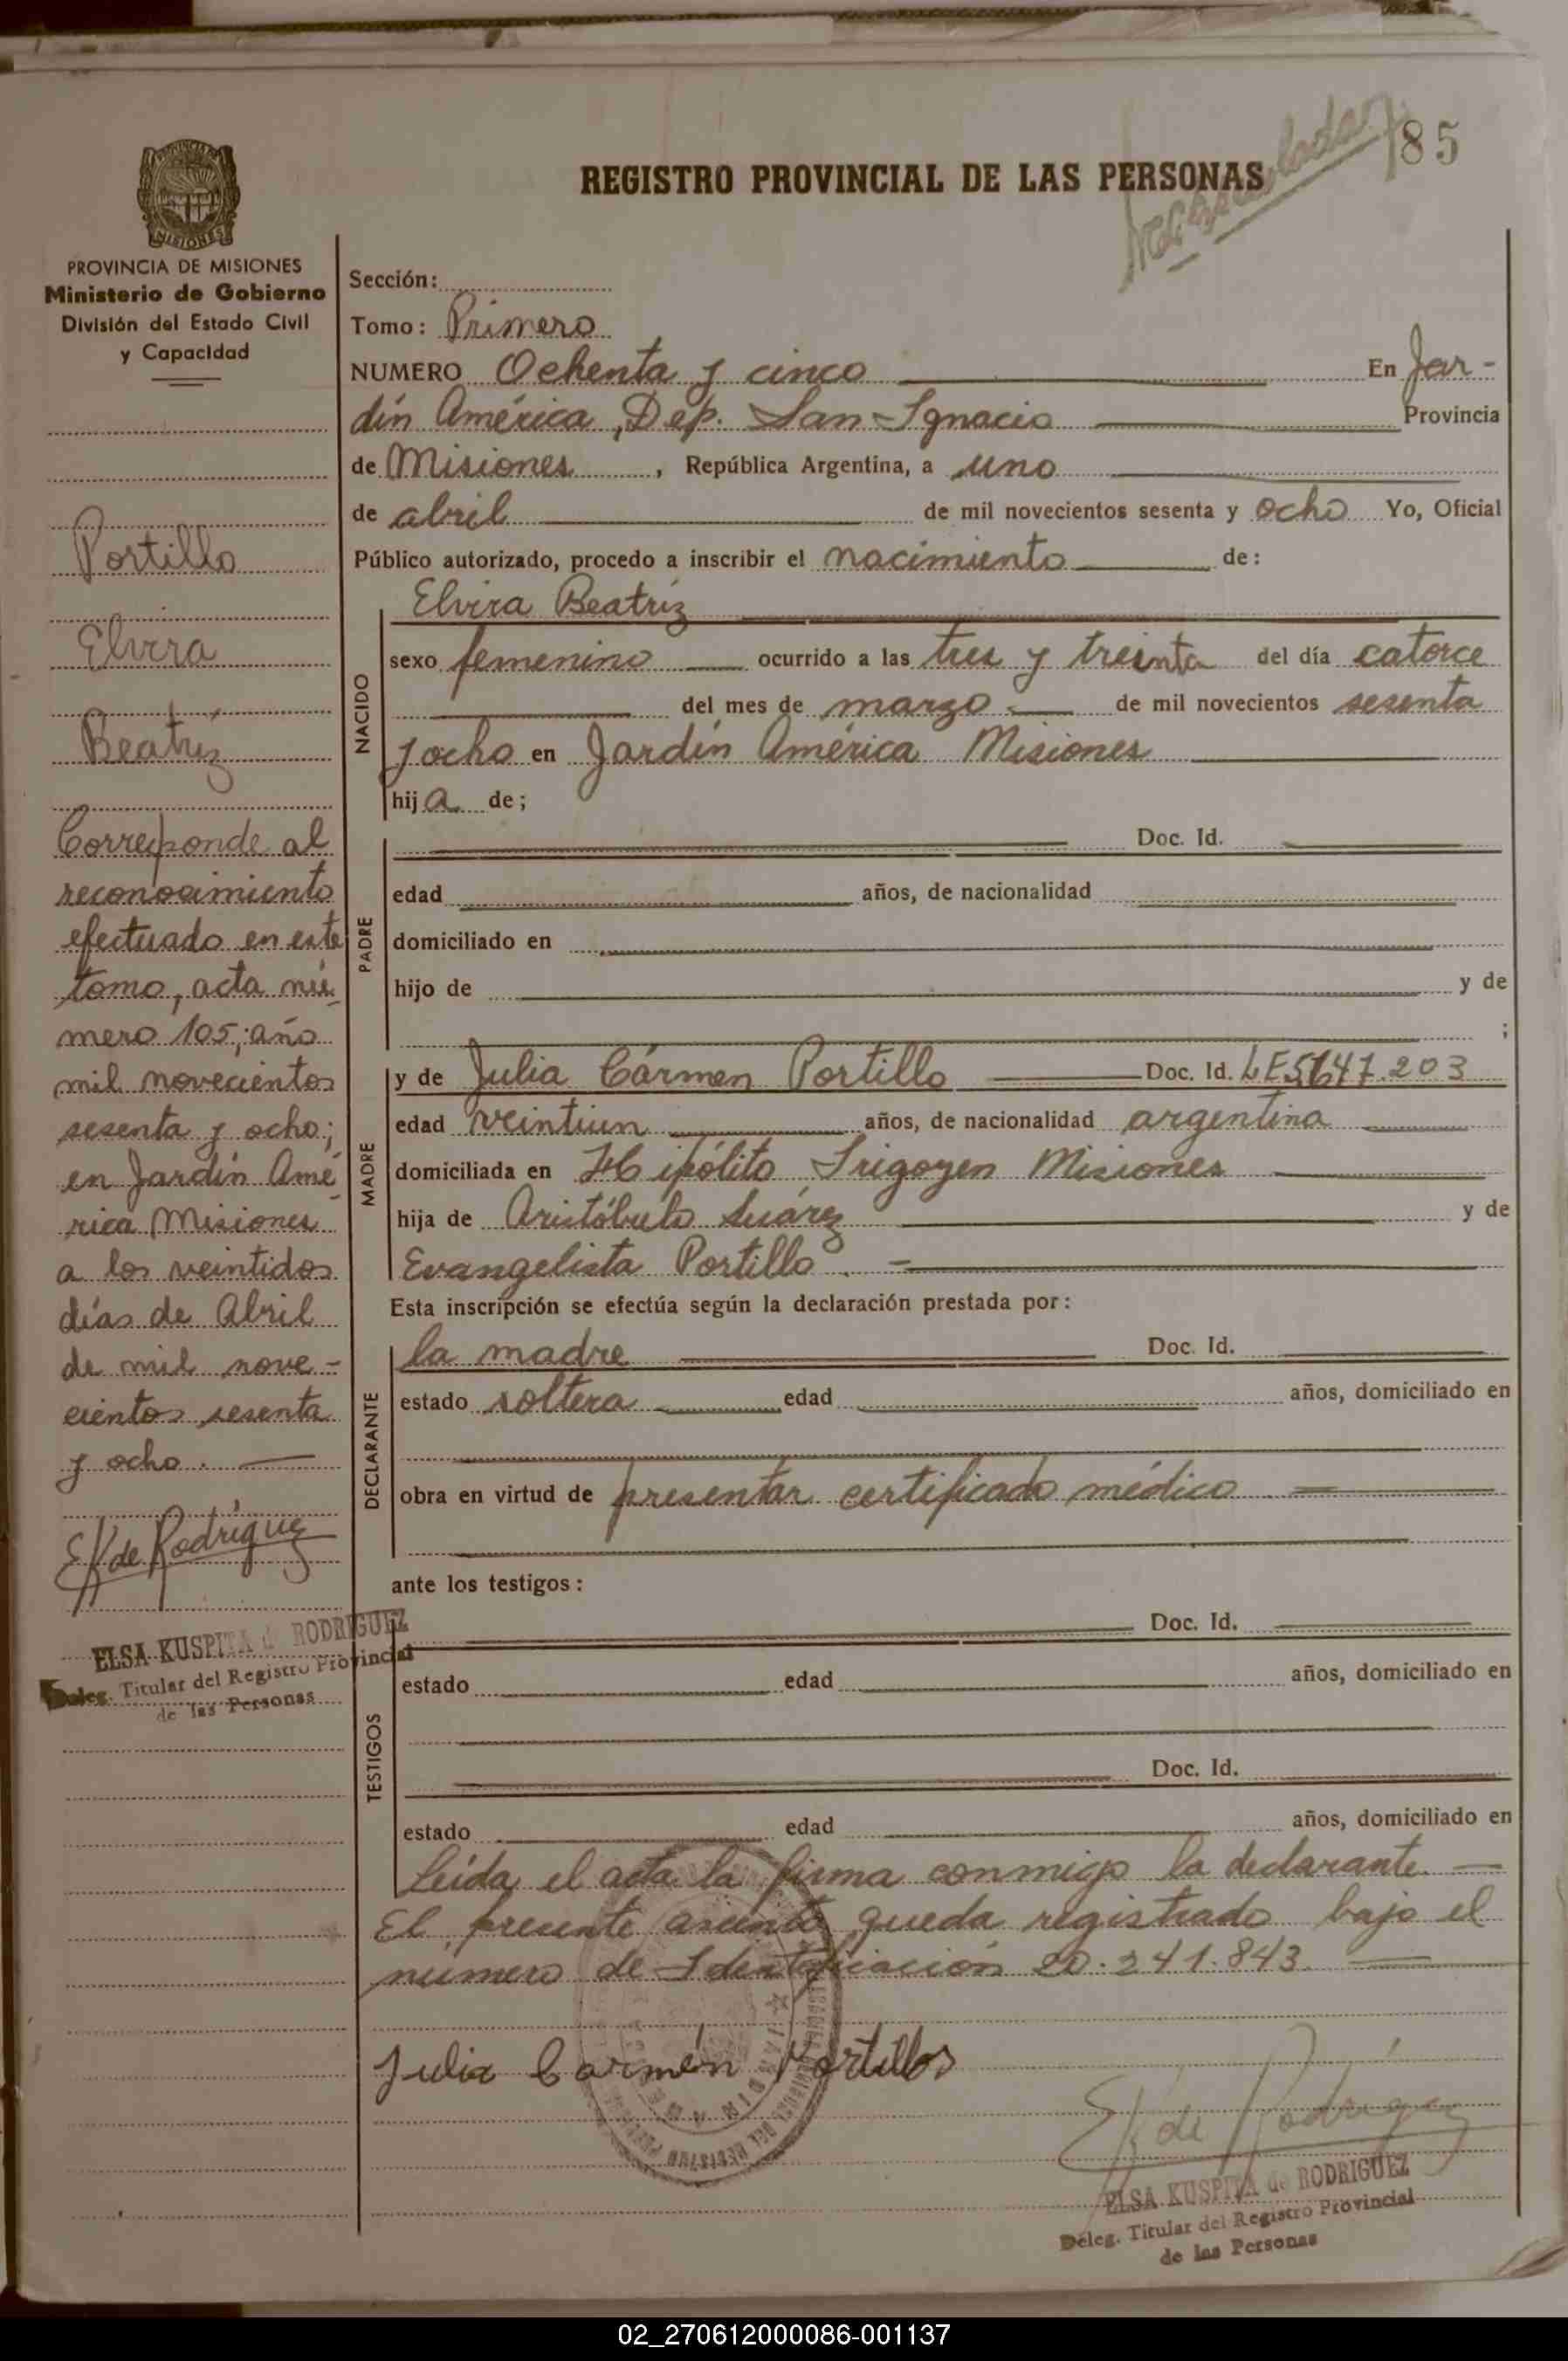 85
REGISTRO PROVINCIAL DE LAS PERSONAS
PROVINCIA DE MISIONES
Ministerio de Gobierno
División del Estado Civil
y Capacidad
Portillo
Elvira
Beatriz
Corresponde al
reconocimiento
efectuado en este
tomo, acta nú-
mero 105; año
mil novecientos
sesenta y ocho;
en Jardín Amé-
rica Misiones
a los veintidos
días de Abril
de mil nove-
cientos sesenta
y ocho.
EK de Rodríguez
ELSA KUSPITA de RODRIGUEZ
Deleg. Titular del Registro Provincial
de las Personas
Sección:
Tomo: Primero
NUMERO Ochenta y cinco En Jar-
dín América, Dep. San Ignacio Provincia
de Misiones, República Argentina, a uno
de abril de mil novecientos sesenta y ocho Yo, Oficial
Público autorizado, procedo a inscribir el nacimiento de:
NACIDO
Elvira Beatriz
sexo femenino ocurrido a las tres y treinta del día catorce
del mes de marzo de mil novecientos sesenta
y ocho en Jardín América Misiones
hija de;
PADRE
Doc. Id.
edad años, de nacionalidad
domiciliado en
hijo de y de
;
MADRE
y de Julia Cármen Portillo Doc. Id. LE 647.203
edad veintiun años, de nacionalidad argentina
domiciliada en Hipólito Irigoyen Misiones
hija de Aristóbulo Suárez y de
Evangelista Portillo.
Esta inscripción se efectúa según la declaración prestada por:
DECLARANTE
la madre Doc. Id.
estado soltera edad años, domiciliado en
obra en virtud de presentar certificado médico
ante los testigos:
TESTIGOS
Doc. Id.
estado edad años, domiciliado en
Doc. Id.
estado edad años, domiciliado en
Leída el acta la firma conmigo la declarante.
El presente asiento queda registrado bajo el
número de Identificación 20.241.843.
Julia Carmen Portillo
EK de Rodríguez
ELSA KUSPITA de RODRIGUEZ
Deleg. Titular del Registro Provincial
de las Personas
02_270612000086-001137